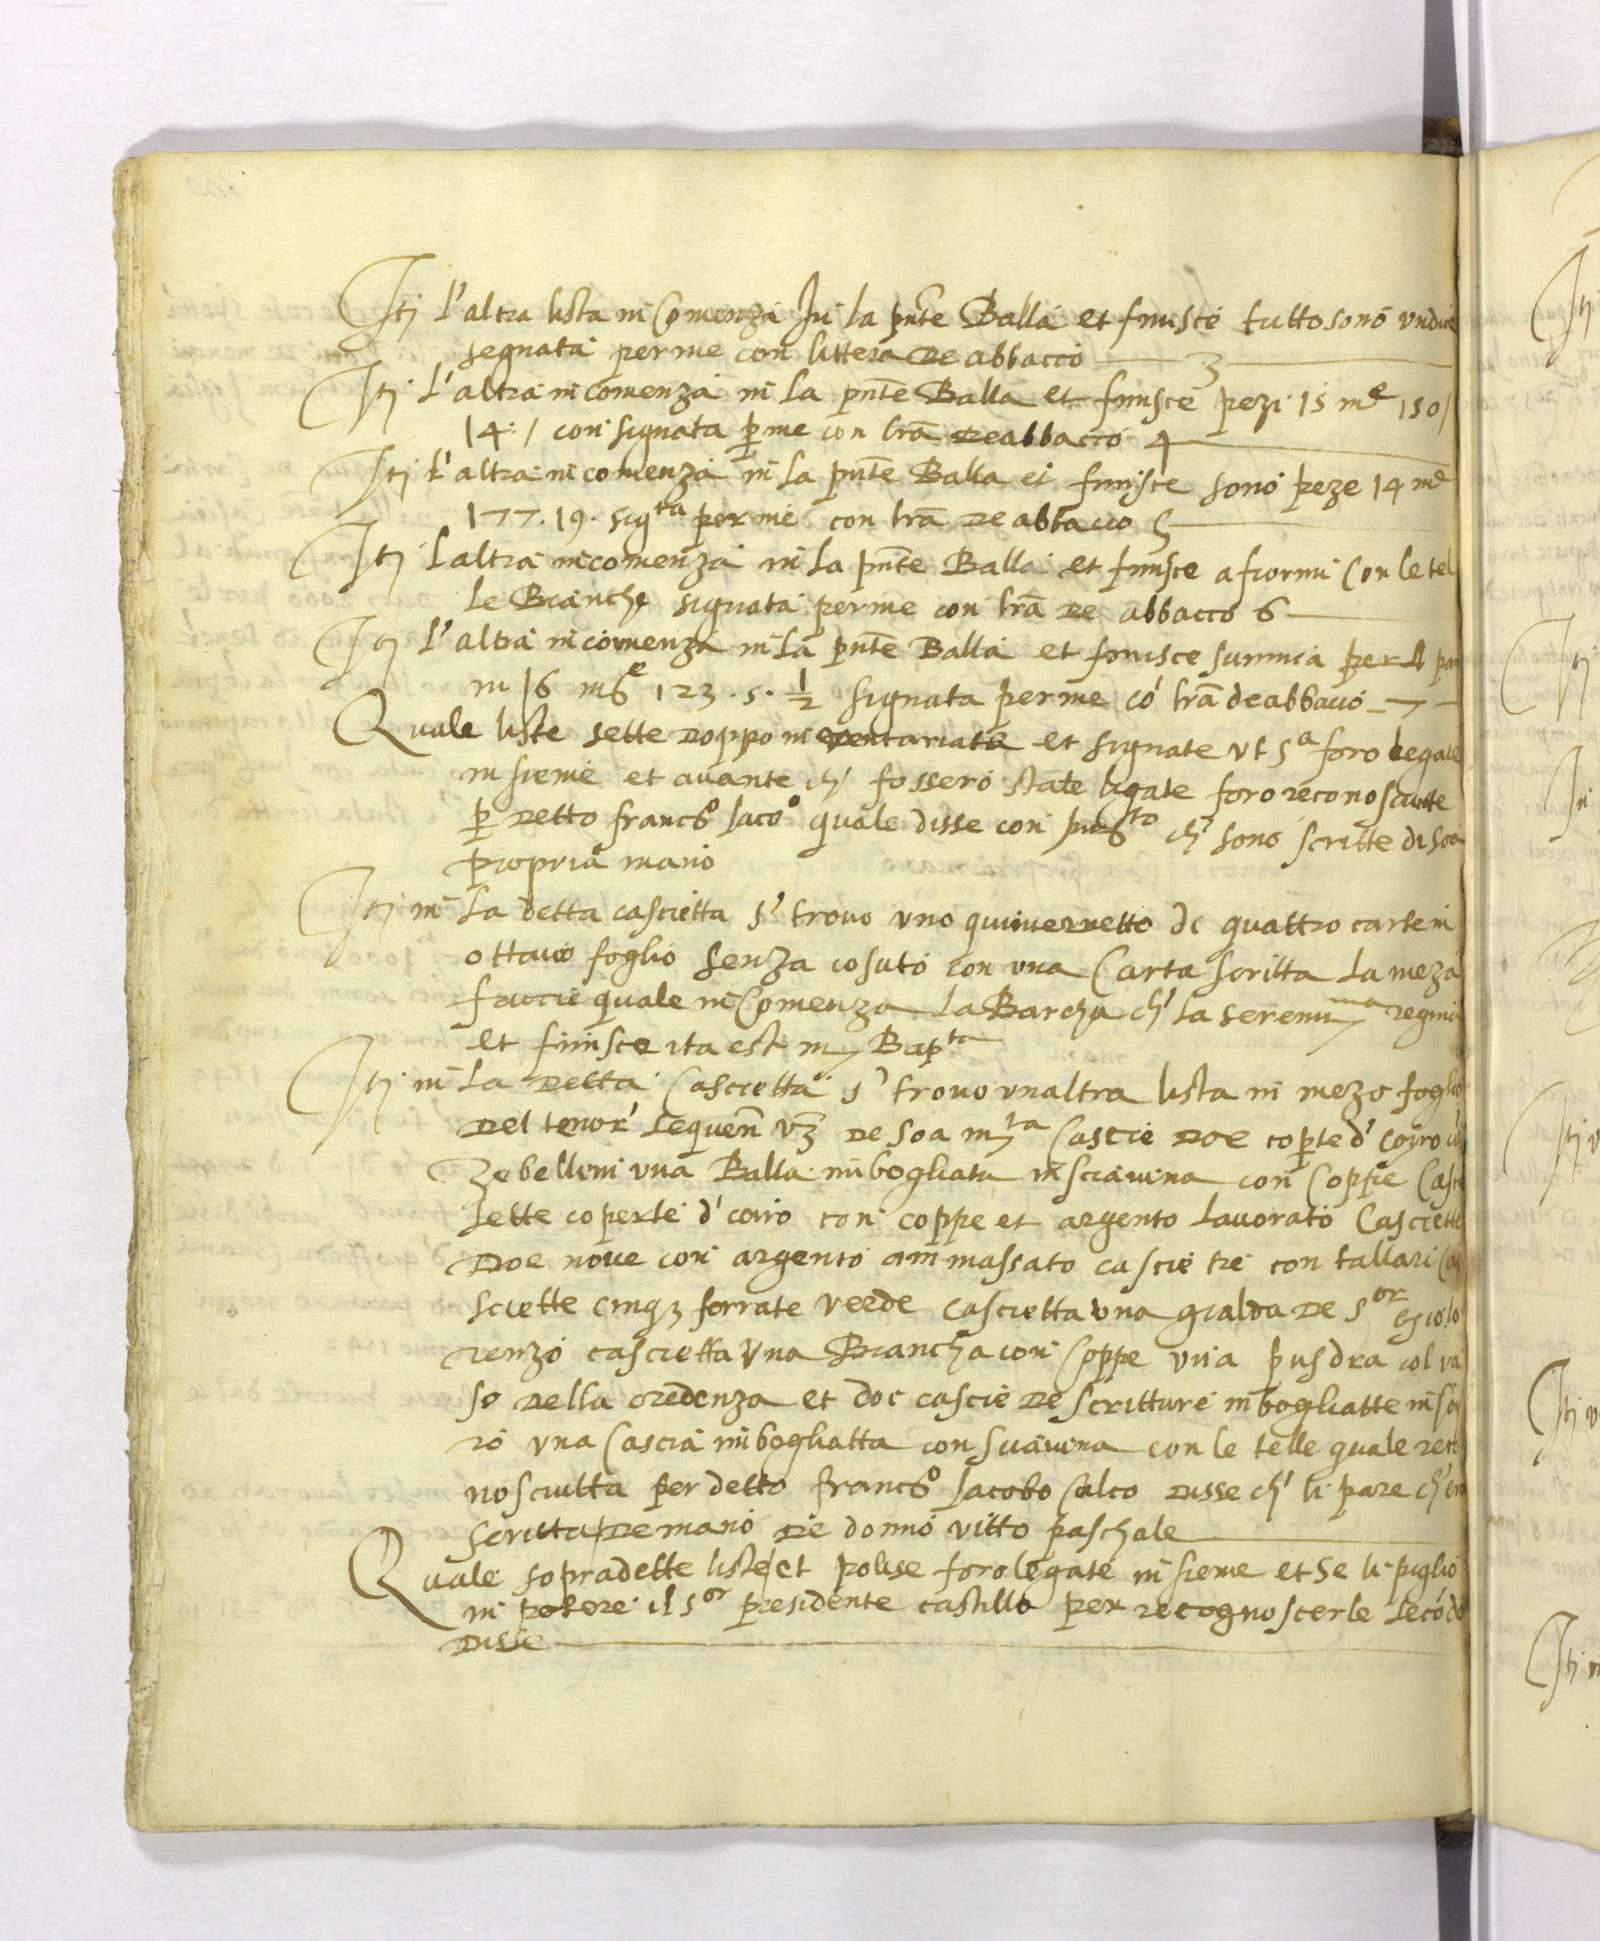 Itj l'altra lista incomenza In la pnte Balla et finisce tutto sono undice
segnata per me con littera de abbacco 3
Itj l'altra incomenza in la pnte Balla et finisce pezi 15 me 150/
14:/ con signata p me con lra de abbacco 4
Itj l'altra incomenza in la pnte Balla et finisce sono peze 14 me
177.19. sigta per me con lra de abbacco 5
Itj laltra incomenza in la pnte Balla et finisce a fiormi con le tel
le Bianche signata per me con lra de abbacco 6
Itj l'altra incomenza in la pnte Balla et finisce summa per
in 16 mse 123.5.1/2 signata per me co lra de abbacco 7
Quale liste sette doppo inventariate et signate ut sa foro legate
insieme et avante ch' fossero state ligate foro reconosciute
p detto francso Jaco quale disse con ch' sono scritte di soa
propria mano
Itj in la detta cascietta s' trovo uno quinternetto di quattro carte in
ottavo foglio senza cosuto con una carta scritta la meza
faccie quale incomenza la Barcha ch' la serenma regina
et finisce ita est Bapta
Itj in la detta cascietta s' trovo unaltra lista in mezo foglio
del tenor' sequen vz de soa mta cascie doe coperte d' coiro
zebellini una Balla imbogliata in sciavina con coppe casc
sette coperte d' coiro con coppe et argento lavorato casciette
doe nove con argento ammassato cascie tre con tallari ca
sciette cinqz ferrate verde cascietta una gialda de sor gio: lo
renzo cascietta una Biancha con coppe una col va
so della credenza et doe cascie de scritture imbogliatte in
ro una cascia imbogliatta con sciavina con le telle quale reco
nosciutta per detto francso Jacobo calco disse ch' li pare ch'
scritta de mano de donno vitto paschale
Quale sopradette liste et polise foro legate insieme et se li piglio
in potere il sor presidente castillo per recognoscerle secodo
disse